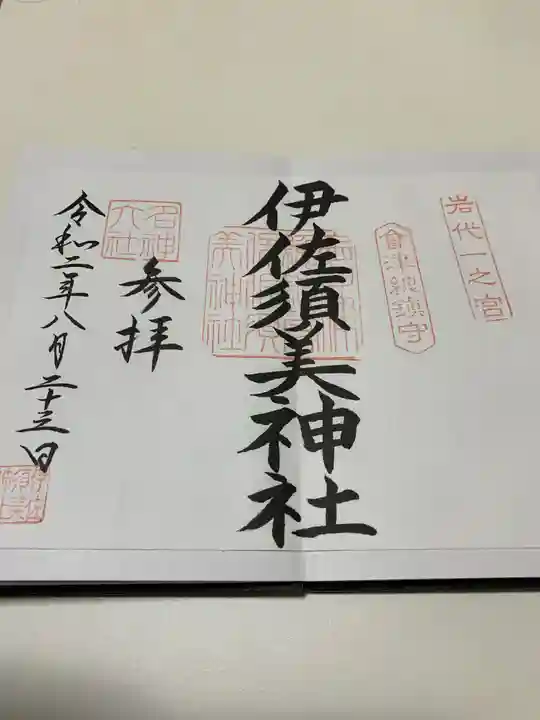 岩代一之宮
會津総鎮守
伊佐須美神社
名神大社
参拝
令和二年八月二十三日